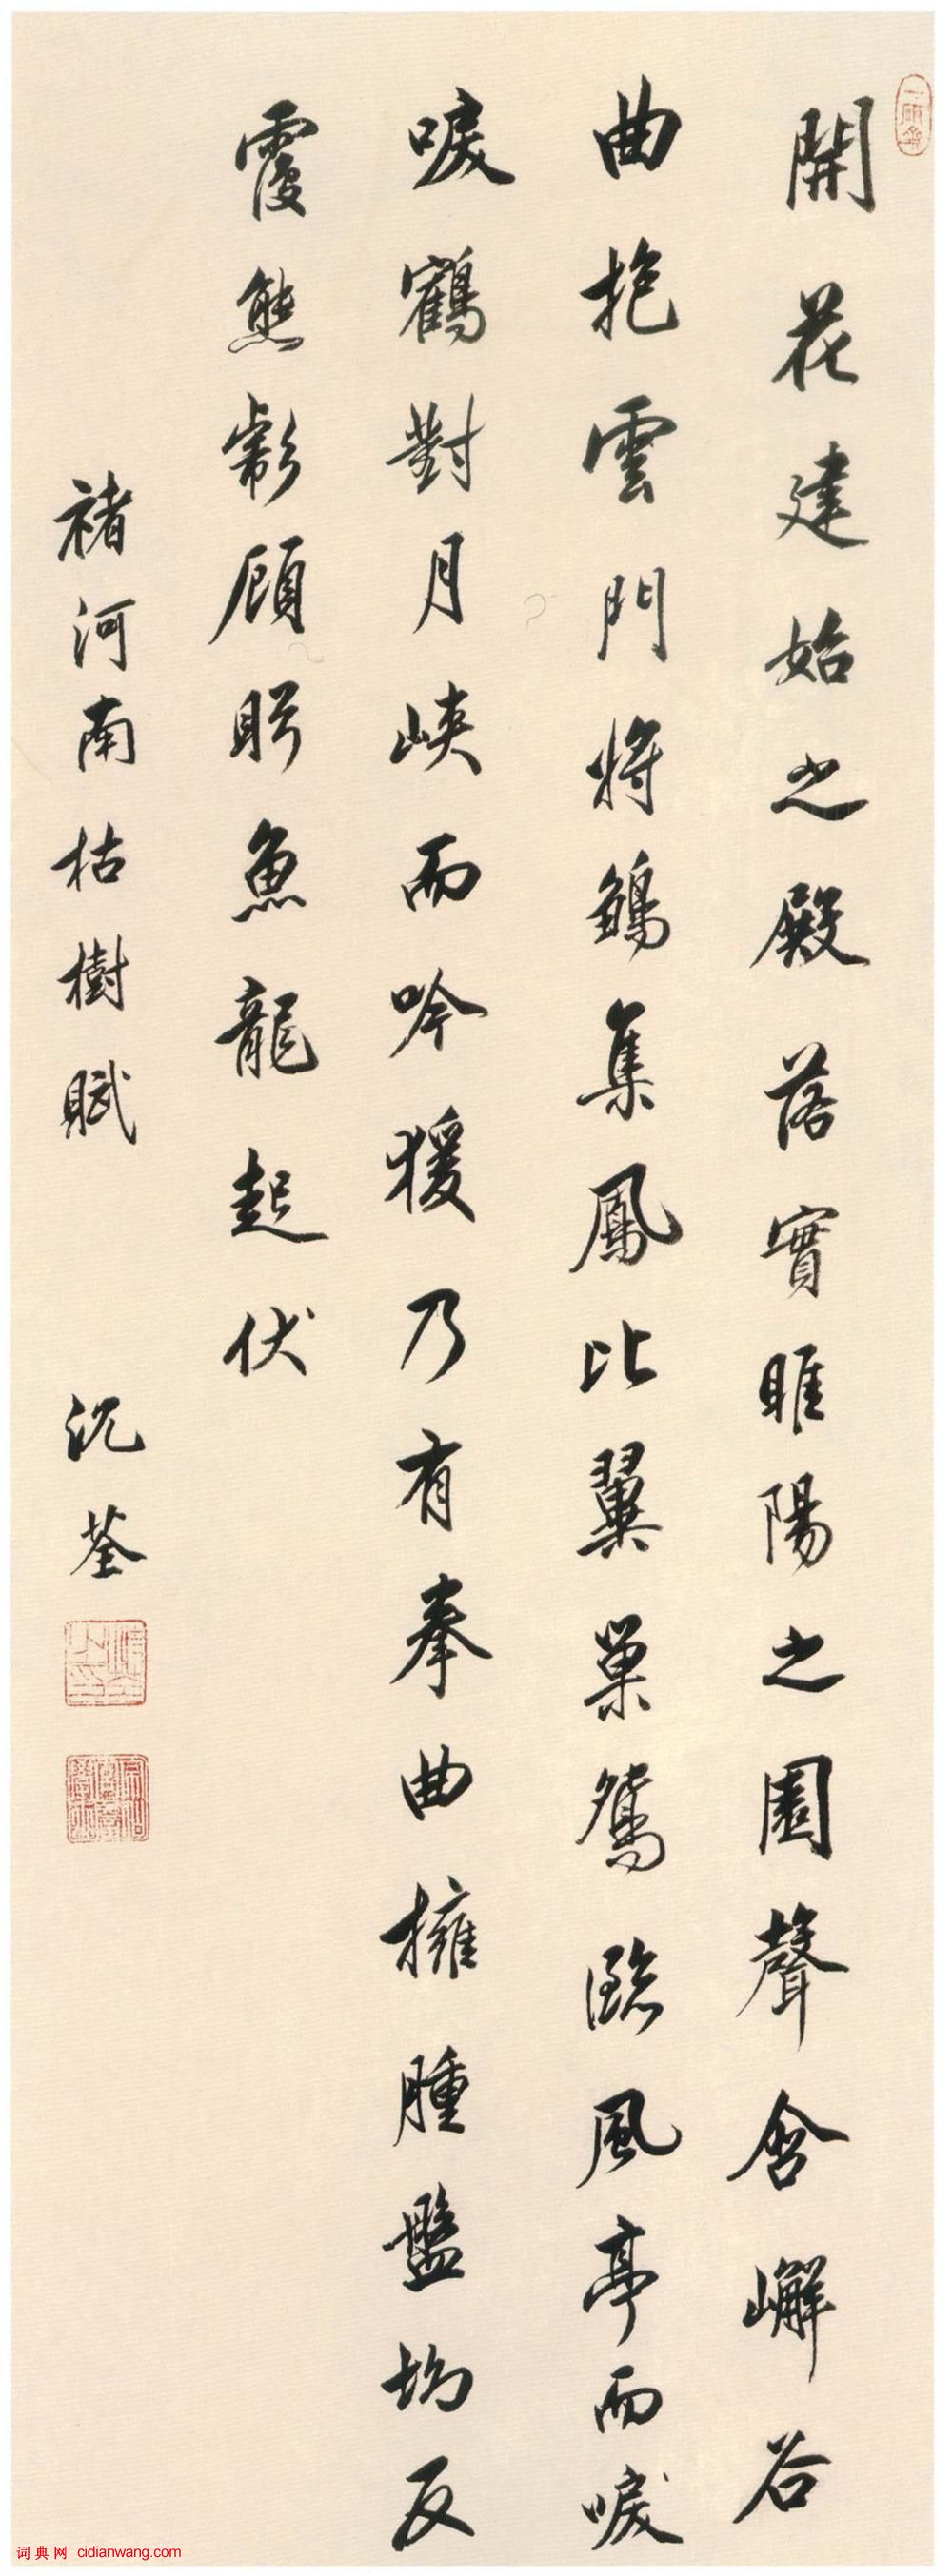 開花建始之殿落實睢陽之園聲含嶰谷
曲抱雲門將鶵集鳳比翼巢鴛臨風亭而唳
唳鶴對月峽而吟猨乃有拳曲擁腫盤坳反
覆熊彪顧盻魚龍起伏
褚河南枯樹賦
沉荃
词典网 cidianwang.com